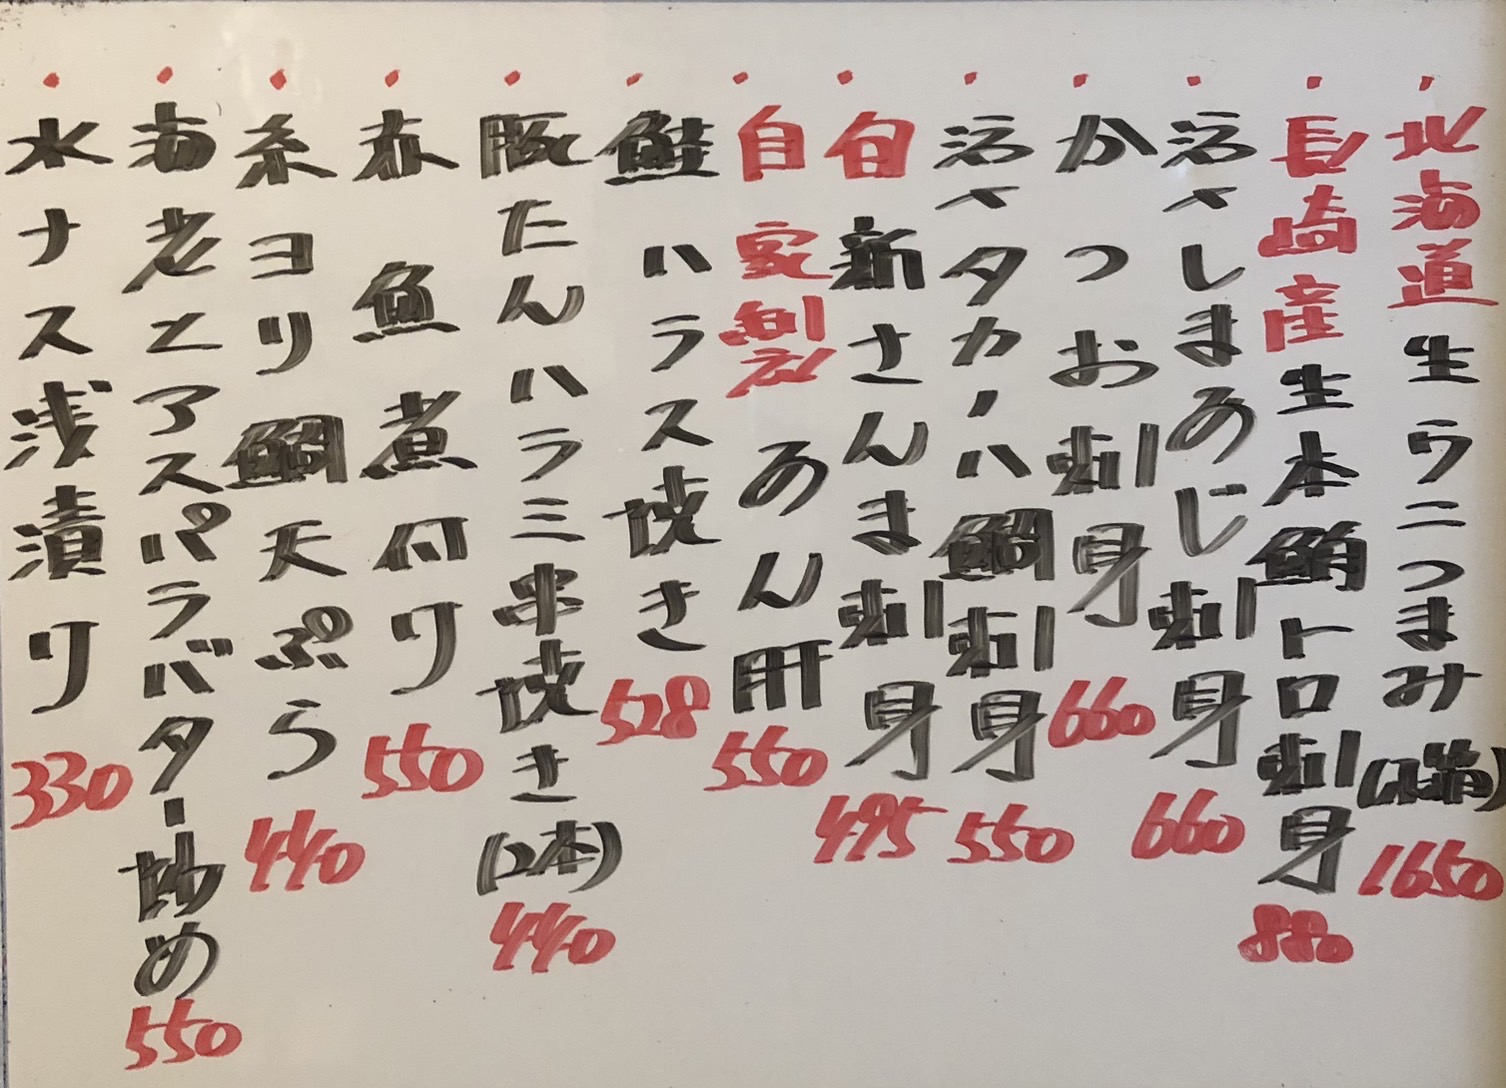 ・北海道生ウニつまみ(1650
・長崎産生本鮪トロ刺身880
・活〆しまあじ刺身660
・かつお刺身660
・活〆タカノハ鯛刺身550
・旬新さんま刺身495
・自家製あん肝550
・鮭ハラス焼き528
・豚たんハラミ串焼き(2本)440
・赤魚煮付り550
・糸ヨリ鯛天ぷら440
・海老とアスパラバター炒め550
・水ナス浅漬り330